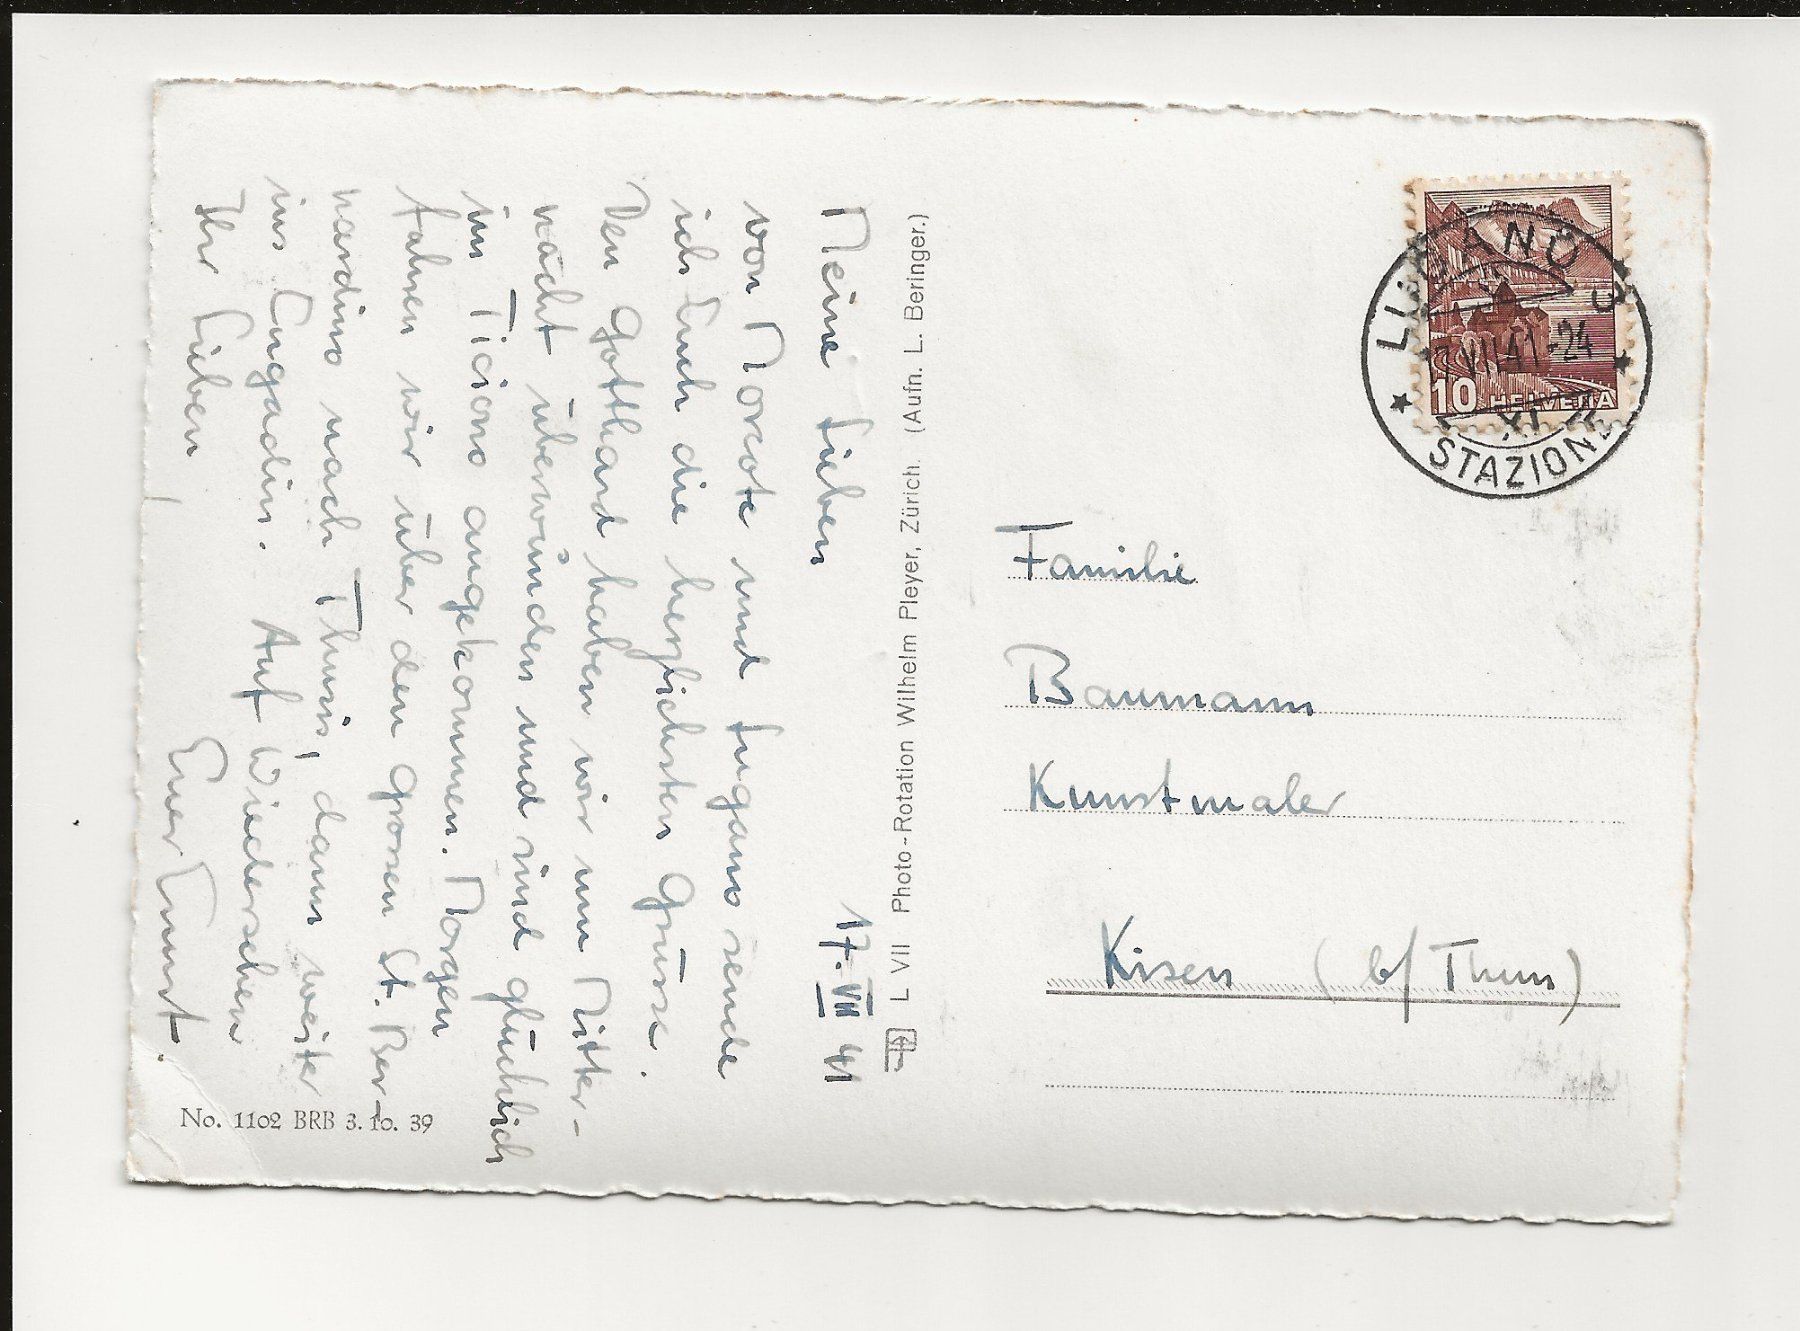 Meine Lieben 17. VII 41
von Morcote und Lugano sende
ich Euch die herzlichsten Grüsse.
Den Gotthard haben wir um Mitter-
nacht überwunden und sind glücklich
im Ticino angekommen. Morgen
fahren wir über den grossen St. Ber-
nardino nach Thusis, dann weiter
ins Engadin. Auf Wiedersehen
Ihr Lieben Euer Ernst.
No. 1102 BRB 3. 10. 39
L VII Photo-Rotation Wilhelm Pleyer, Zürich. (Aufn. L. Beringer.)
LUGANO 3
17.VII.41-24
XI
STAZIONE
10 HELVETIA
Familie
Baumann
Kunstmaler
Kisen (b/ Thun)